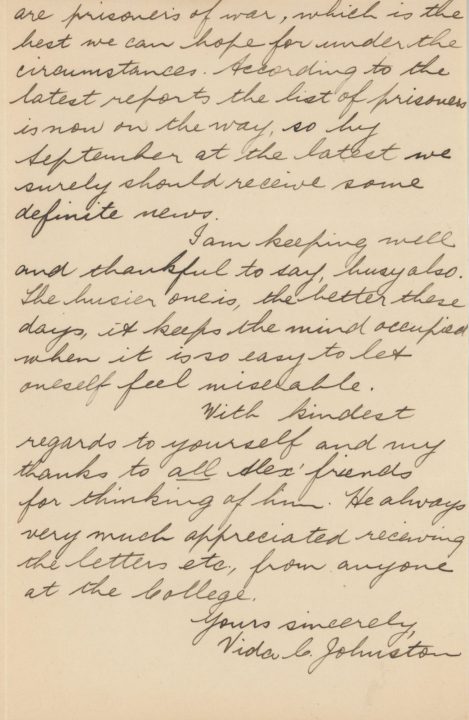 are prisoners of war, which is the
best we can hope for under the
circumstances. According to the
latest reports the list of prisoners
is now on the way, so by
September at the latest we
surely should receive some
definite news.
I am keeping well
and thankful to say, busy also.
The busier one is, the better these
days, it keeps the mind occupied
when it is so easy to let
oneself feel miserable.
With kindest
regards to yourself and my
thanks to all Alex' friends
for thinking of him. He always
very much appreciated receiving
the letters etc, from anyone
at the College.
Yours sincerely,
Vida C. Johnston